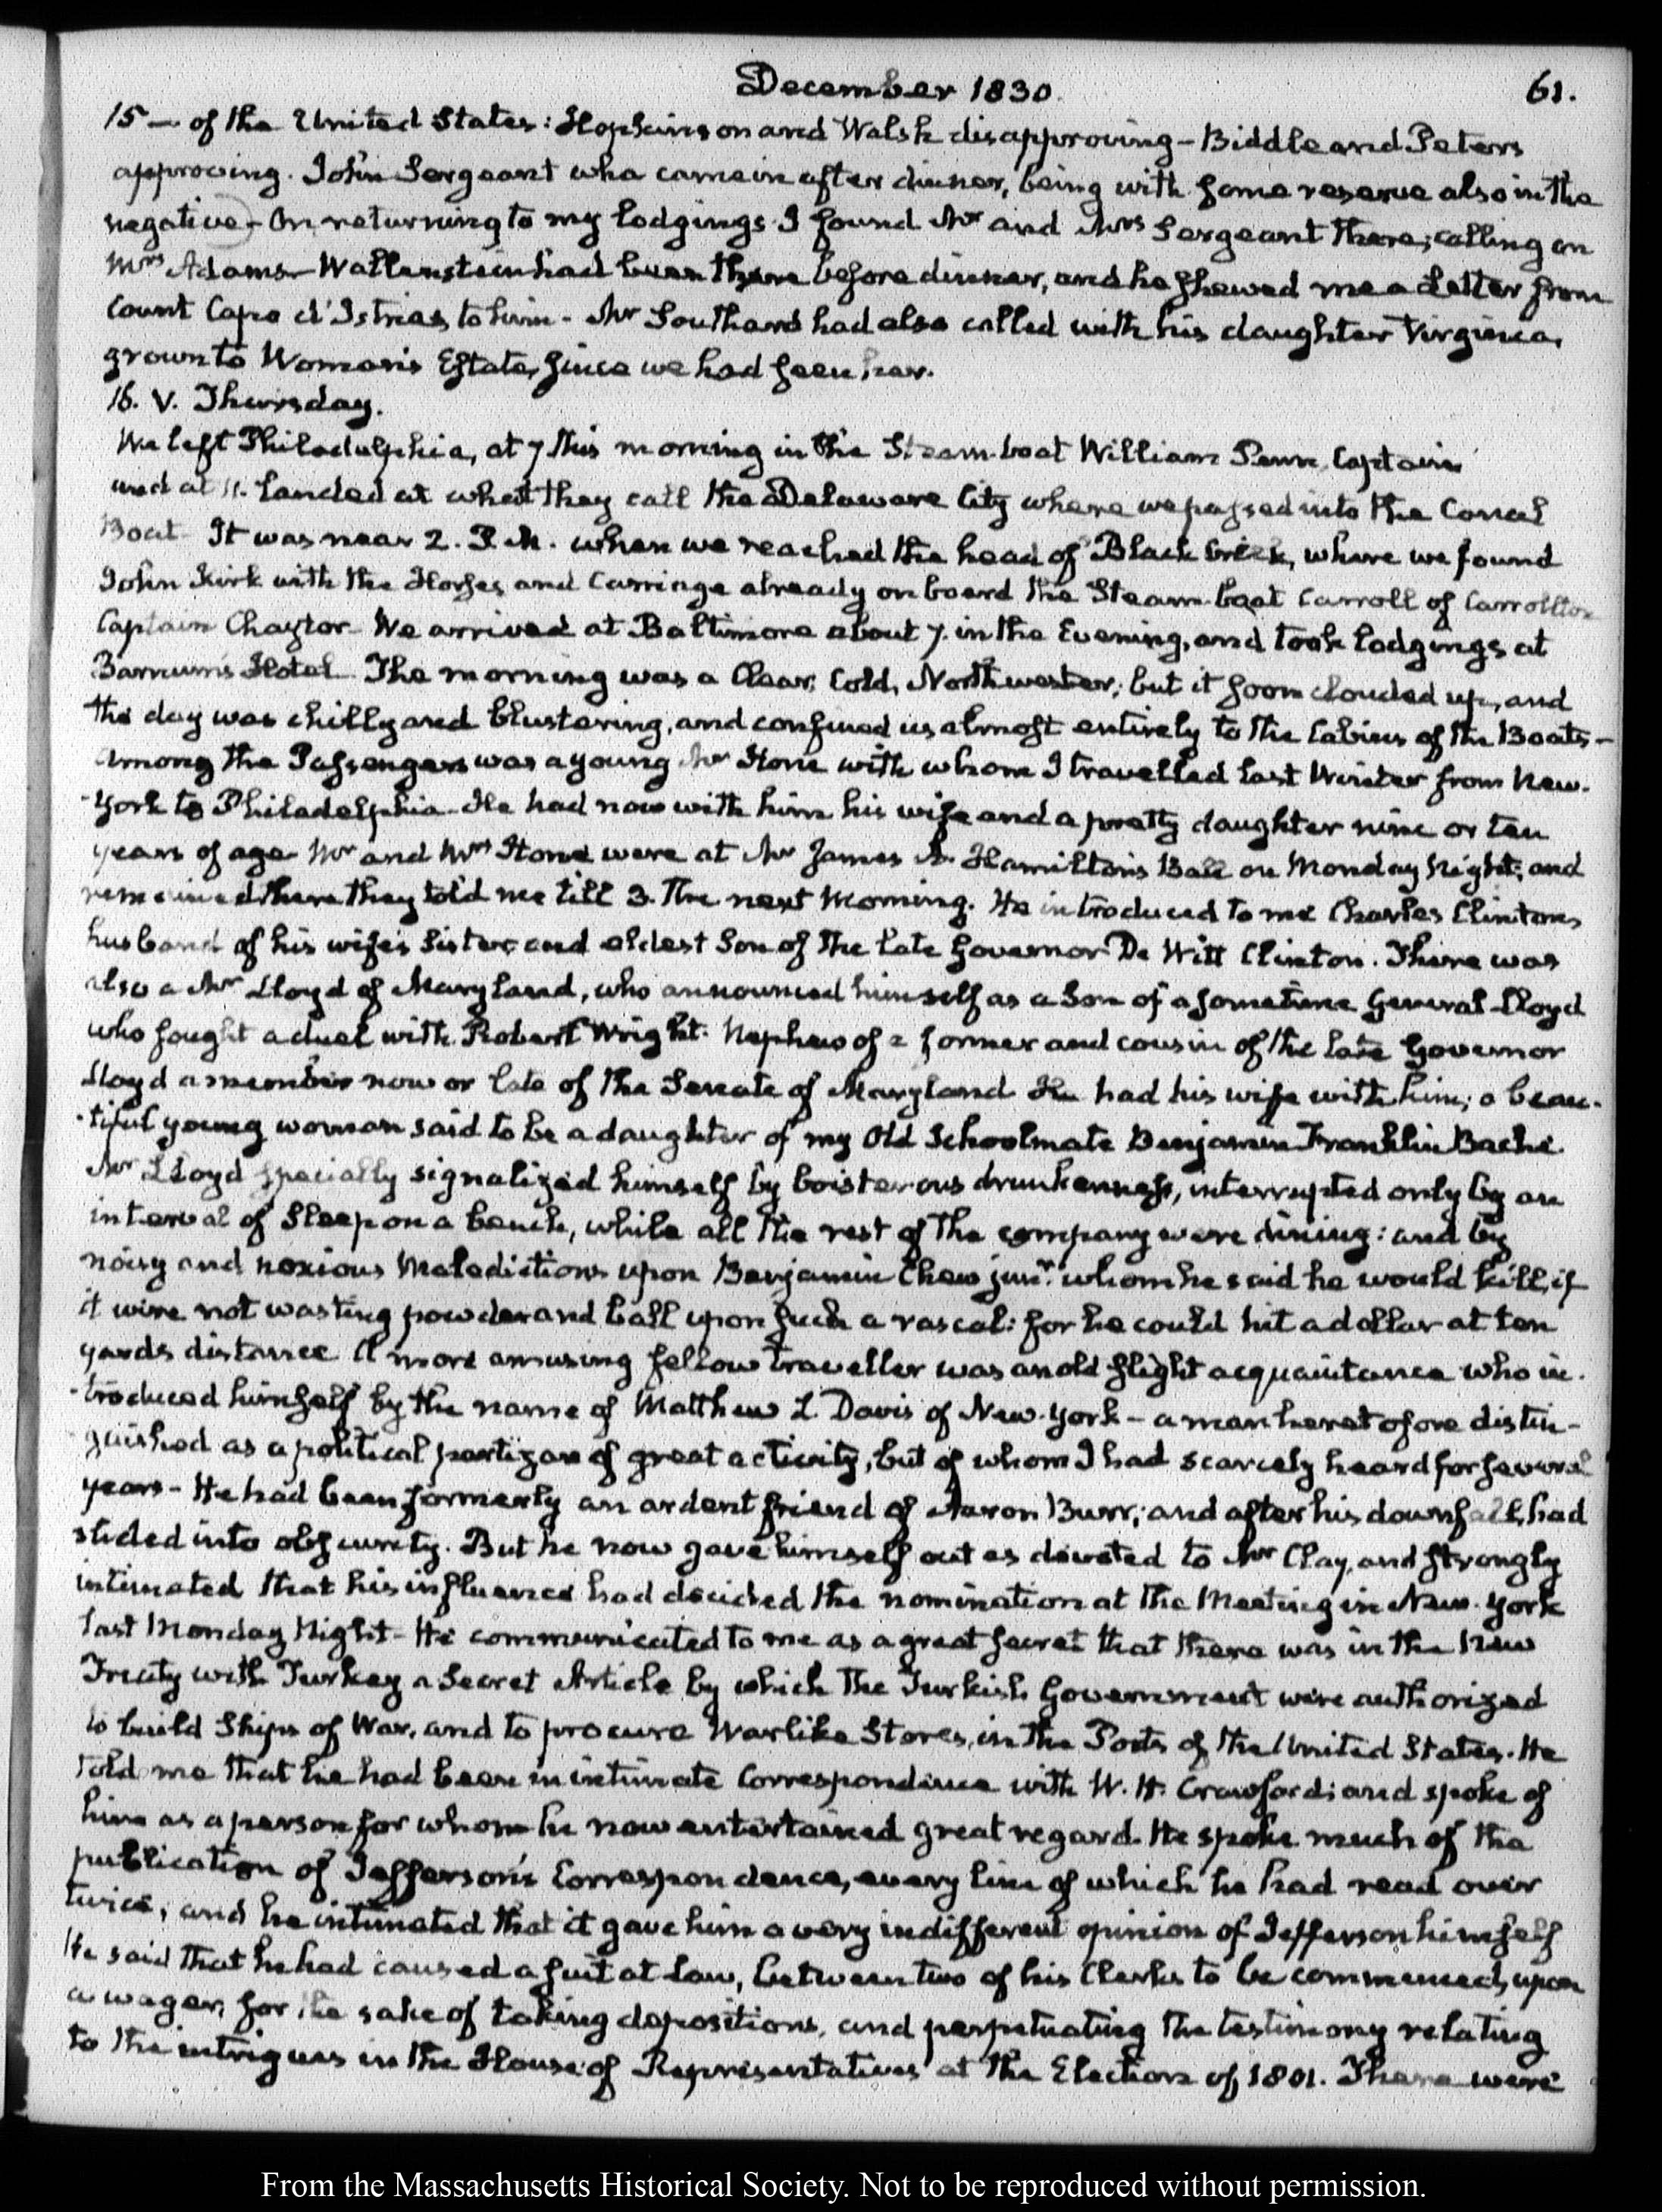 December 1830.
61.
15 — of the United States: Hopkinson and Walsh disapproving – Biddle and Peters
approving. John Sergeant who came in after dinner, being with some reserve also in the
negative – On returning to my lodgings I found Mr and Mrs Sergeant there, calling on
Mrs Adams – Wallenstein had been there before dinner, and he shewed me a Letter from
Count Capo d'Istrias to him – Mr Southard had also called with his daughter Virginia,
grown to Woman's Estate, since we had seen her.
16. V. Thursday.
We left Philadelphia, at 7 this morning in the Steam-boat William Penn, Captain
and at 11. landed at what they call the Delaware City where we passed into the Canal
Boat – It was near 2. P.M. when we reached the head of Black Creek, where we found
John Kirk with the Horses and Carriage already on board the Steam-boat Carroll of Carrollton
Captain Chaytor – We arrived at Baltimore about 7. in the Evening, and took lodgings at
Barnum's Hotel – The morning was a Clear, Cold, Northwester; but it soon clouded up, and
the day was chilly and blustering, and confined us almost entirely to the Cabins of the Boats –
Among the Passengers was a young Mr Hone with whom I travelled last Winter from New-
-York to Philadelphia – He had now with him his wife and a pretty daughter nine or ten
years of age – Mr and Mrs Hone were at Mr James A. Hamilton's Ball on Monday Night; and
remained there they told me till 3. the next Morning. He introduced to me Charles Clinton,
husband of his wife's Sister, and eldest Son of the late Governor De Witt Clinton. There was
also a Mr Lloyd of Maryland, who announced himself as a Son of a sometime General Lloyd
who fought a duel with Robert Wright. Nephew of a former and cousin of the late Governor
Lloyd a member now or late of the Senate of Maryland He had his wife with him; a beau-
-tiful young woman said to be a daughter of my Old Schoolmate Benjamin Franklin Bache.
Mr Lloyd specially signalized himself by boisterous drunkenness, interrupted only by an
interval of Sleep on a bench, while all the rest of the company were dining: and by
noisy and noxious Maledictions upon Benjamin Chew junr. whom he said he would kill, if
it were not wasting powder and ball upon such a rascal: for he could hit a dollar at ten
yards distance A more amusing fellow traveller was an old slight acquaintance who in-
-troduced himself by the name of Matthew L Davis of New-York – a man heretofore distin-
guished as a political partizan of great activity, but of whom I had scarcely heard for several
years – He had been formerly an ardent friend of Aaron Burr; and after his downfall, had
slided into obscurity. But he now gave himself out as devoted to Mr Clay, and strongly
intimated that his influence had decided the nomination at the Meeting in New-York
last Monday Night – He communicated to me as a great secret that there was in the New
Treaty with Turkey a Secret Article by which the Turkish Government were authorized
to build Ships of War, and to procure Warlike Stores, in the Ports of the United States. He
told me that he had been in intimate Correspondence with W. H. Crawford; and spoke of
him as a person for whom he now entertained great regard. He spoke much of the
publication of Jefferson's Correspondence, every line of which he had read over
twice; and he intimated that it gave him a very indifferent opinion of Jefferson himself
He said that he had caused a suit at Law, between two of his Clerks to be commenced, upon
a wager, for the sake of taking depositions, and perpetuating the testimony relating
to the intrigues in the House of Representatives at the Election of 1801. There were
From the Massachusetts Historical Society. Not to be reproduced without permission.